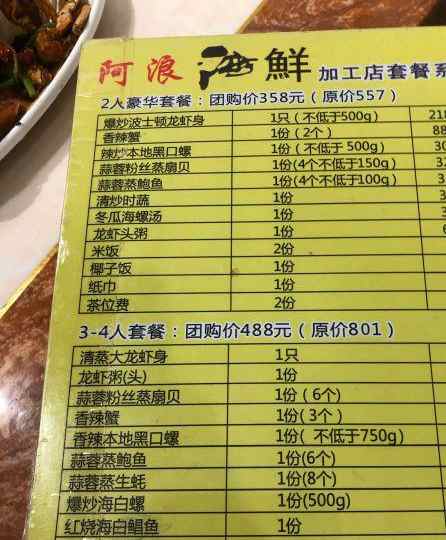 阿浪海鲜 加工店套餐系
2人豪华套餐：团购价358元（原价557）
爆炒波士顿龙虾身 1只（不低于500g） 218
香辣蟹 1份（2个） 88
辣炒本地黑口螺 1份（不低于 500g） 30
蒜蓉粉丝蒸扇贝 1份(4个不低于150g） 32
蒜蓉蒸鲍鱼 1份(4个不低于100g）
清炒时蔬 1份
冬瓜海螺汤 1份
龙虾头粥 1份
米饭 2份
椰子饭 1份
纸巾 1份
茶位费 2份
3-4人套餐：团购价488元（原价801）
清蒸大龙虾身 1只
龙虾粥(头) 1份
蒜蓉粉丝蒸扇贝 1份（6个)
香辣蟹 1份（3个）
香辣本地黑口螺 1份( 不低于750g）
蒜蓉蒸鲍鱼 1份(6个)
蒜蓉蒸生蚝 1份(8个)
爆炒海白螺 1份(500g)
红烧海白鲳鱼 1份